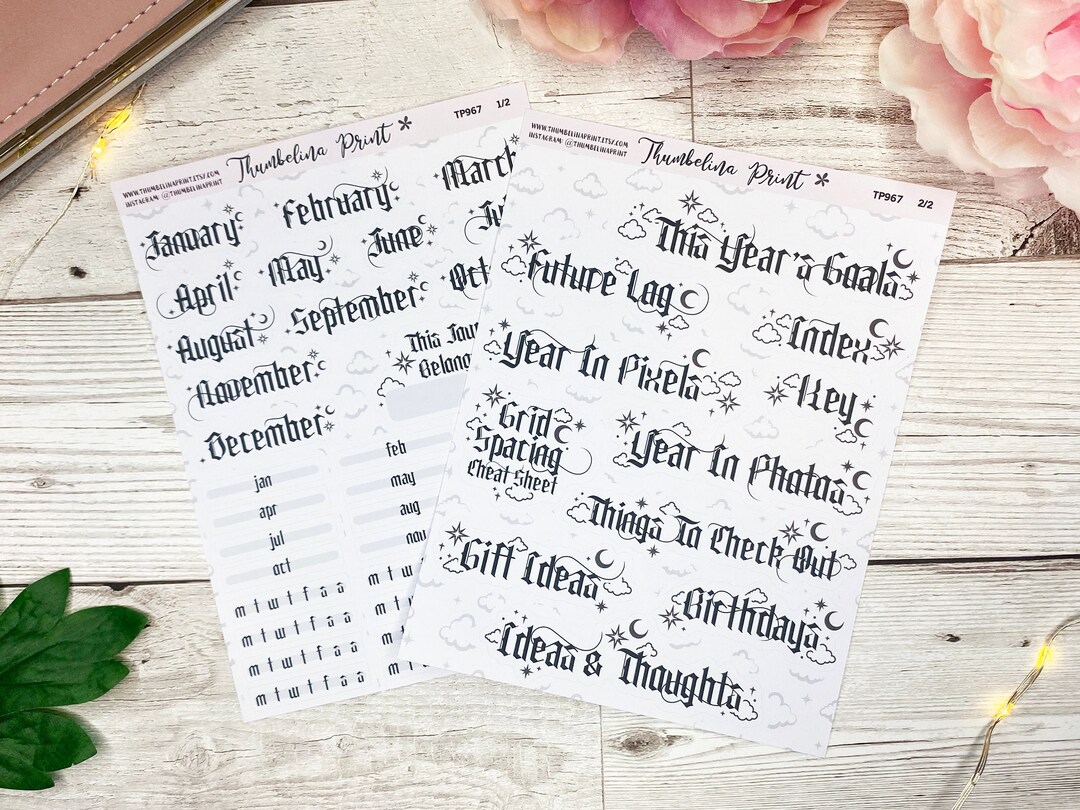 TP967 1/2
Thumbelina Print *
WWW.THUMBELINAPRINT.ETSY.COM
INSTAGRAM: @THUMBELINAPRINT
January
February
March
April
May
June
August
September
November
December
This
jan
feb
apr
may
jul
aug
oct
nov
m t w t f s s
m t w t f s s
m t w t f s s
m t w t f s s
m t w
m t
m t
m t
WWW.THUMBELINAPRINT.ETSY.COM
INSTAGRAM: @THUMBELINAPRINT
Thumbelina Print *
TP967 2/2
This Year's Goals
Future Log
Index
Year In Pixels
Key
Grid
Spacing
Cheat Sheet
Year In Photos
Things To Check Out
Gift Ideas
Birthdays
Ideas & Thoughts